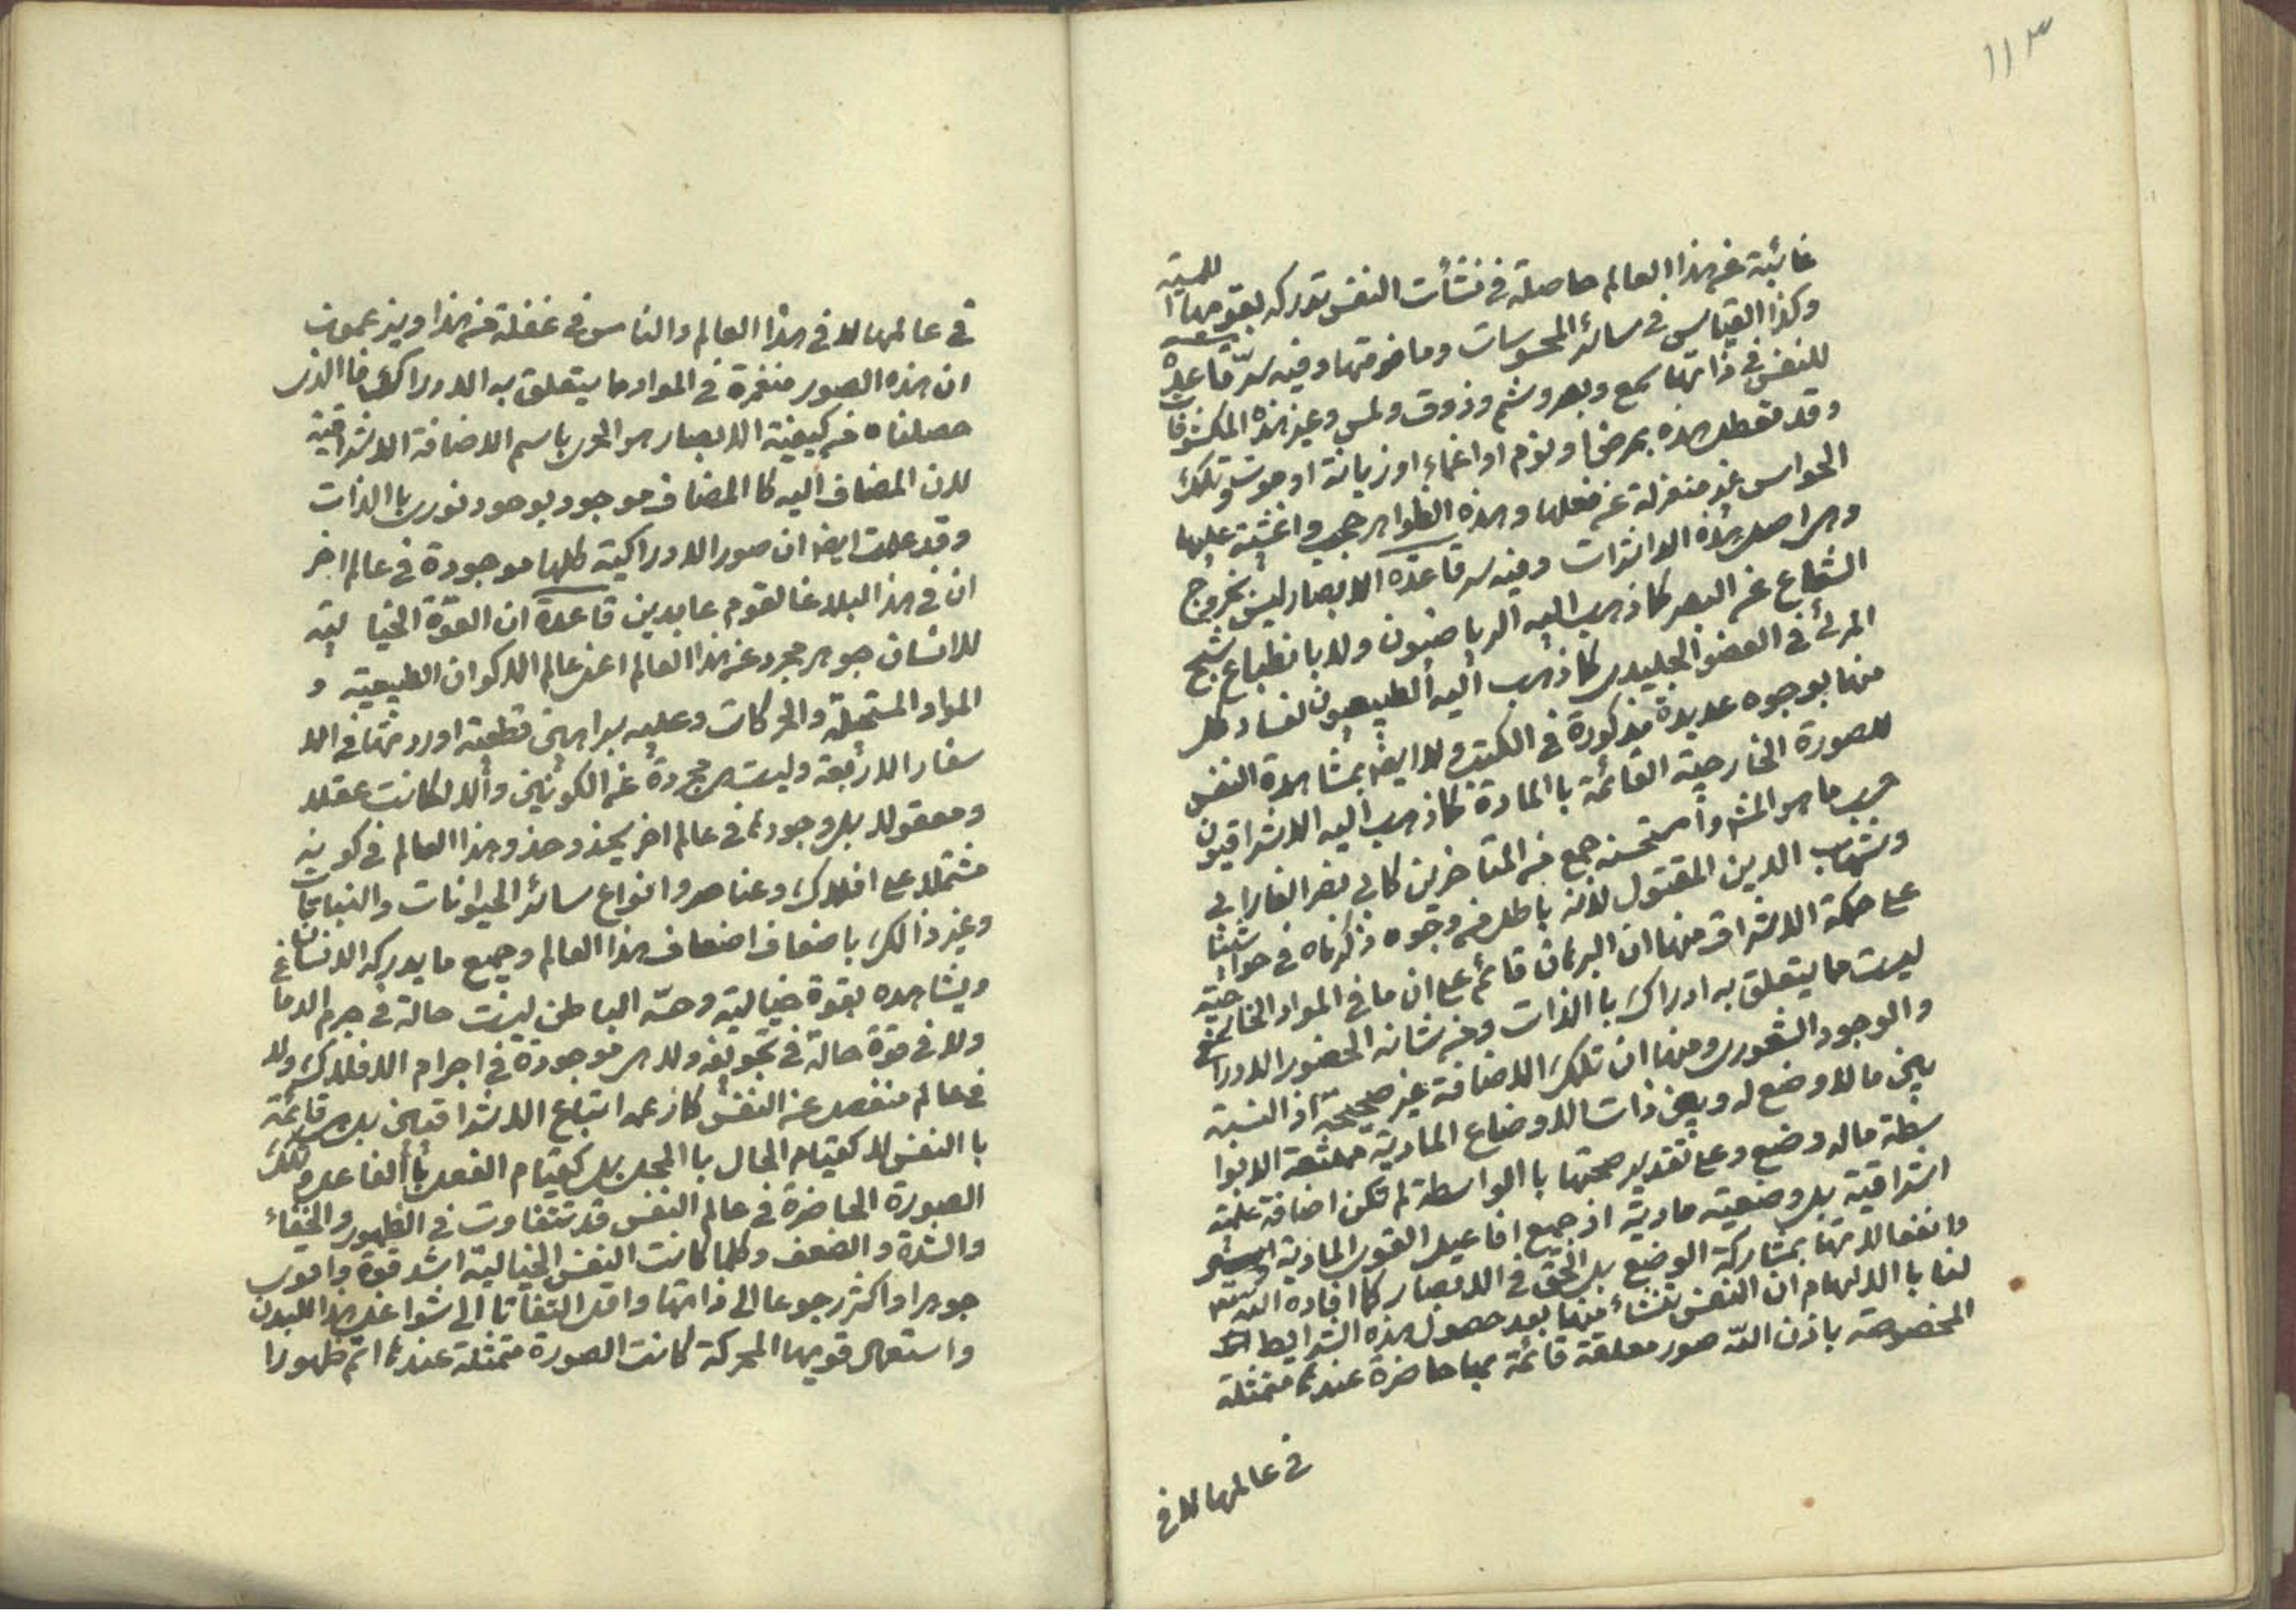 ١١٣
غائبة عن هذا العالم حاصلة في نشأت النفس تدركه بقوتها الحسية
وكذا القياس في سائر المحسوسات وما فوقها وفيه سرّ قاعدة
للنفس في ذاتها سمع وبصر وشم وذوق ولمس وغير هذه المكشوفات
وقد تعطل هذه بمرض او نوم او اغماء او زمانة او موت وتلك
الحواس غير منعزلة عن فعلها وهذه الظواهر حجب واغشية عليها
وهي اصل هذه الداثرات وفيه سر قاعدة الابصار ليس بخروج
الشعاع عن البصر كما ذهب اليه الرياضيون ولا بانطباع شبح
المرئى في العضو الجليدى كما ذهب اليه الطبيعيون لفساد كل
منهما بوجوه عديدة مذكورة في الكتب ولا ايضا بمشاهدة النفس
للصورة الخارجية القائمة با المادة كما ذهب اليه الاشراقيون
حسب ما هو المشهور واستحسنه جمع من المتاخرين كابى نصر الفارابى
وشهاب الدين المقتول لانه باطل من وجوه ذكرناه في حواشينا
على حكمة الاشراق منها ان البرهان قائم على ان ما في المواد الخارجية
ليست مما يتعلق به ادراك با الذات ومن شانه الحضور الادراكى
والوجود الشعورى ومنها ان تلك الاضافة غير صحيحة اذ النسبة
بين مالا وضع له وبين ذات الاوضاع المادية ممتنعة الا بوا
سطة ماله وضع وعلى تقدير صحتها با الواسطة لم تكن اضافة علمية
اشراقية بل وضعية مادية اذ جميع افاعيل القوى المادية
وانفعالاتها بمشاركة الوضع بل الحق في الابصار كما افاده الله
لنا با الالهام ان النفس تنشاء منها بعد حصول هذه الشرايط
المخصوصة باذن الله صور معلقة قائمة بها حاضرة عندها متمثلة
في عالمها لا في
في عالمها لا في هذا العالم والناس في غفلة من هذا ويزعمون
ان هذه الصور منغمرة في المواد مما يتعلق به الادراك فا الذى
حصلناه من كيفية الابصار هو الحرى باسم الاضافة الاشراقية
لان المضاف اليه كا المضاف موجود بوجود نورى با الذات
وقد علمت ايضا ان صور الادراكية كلها موجودة في عالم اخر
ان في هذا لبلاغا لقوم عابدين قاعدة ان القوة الخيالية
للانسان جوهر مجرد عن هذا العالم اعنى عالم الاكوان الطبيعية و
المواد المستحيلة والحركات وعليه براهين قطعية اوردتها في الا
سفار الاربعة وليست مجردة عن الكونين والا لكانت عقلا
ومعقولا بل وجودها في عالم اخر يحذو حذو هذا العالم في كونه
مشتملا على افلاك وعناصر وانواع سائر الحيوانات والنباتات
وغير ذالك باضعاف اضعاف هذا العالم وجميع ما يدركه الانسان
ويشاهده بقوة خيالية وحسه الباطن ليست حالة في جرم الدماغ
ولا في قوة حالة في تجويفه ولا هى موجودة في اجرام الافلاك ولا
في عالم منفصل عن النفس كما زعمه اتباع الاشراقيين بل هى قائمة
با النفس لا كقيام الحال با المحل بل كقيام الفعل با الفاعل وتلك
الصورة الحاضرة في عالم النفس قد تتفاوت في الظهور والخفاء
والشدة والضعف وكلما كانت النفس الخيالية اشد قوة واقوى
جوهرا واكثر رجوعا الى ذاتها واقل التفاتا الى شواغل هذا البدن
واستعمال قويها المحركة كانت الصورة متمثلة عندها اتم ظهورا